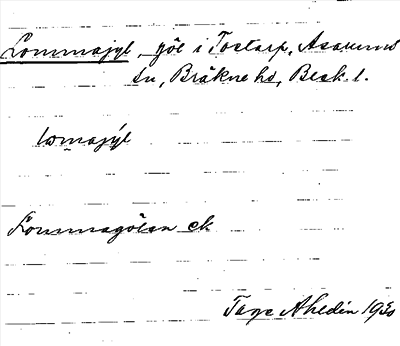 Lommajyl, göl i Tostarp, Asarums
sn, Bräkne hd, Blek. l.
lomajýl
Lommagölen ek
Tage Ahldén 1930